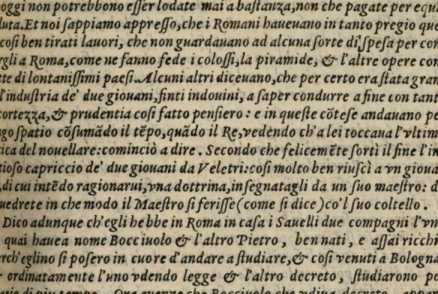 oggi non potrebbono esser lodate mai a bastanza, non che pagate per equi
luta. Et noi sappiamo appresso, che i Romani haueuano in tanto pregio que
cosi ben tirati lauori, che non guardauano ad alcuna sorte di spesa per con
rgli a Roma, come ne fanno fede i colossi, la piramide, & l'altre opere con
tte di lontanissimi paesi. Alcuni altri diceuano, che per certo era stata gran
l'industria de' due giouani, finti indouini, a saper condurre a fine con tant
cortezza, & prudentia cosi fatto pensiero: e in queste cōtese andauano pe
go spatio cōsumādo il tēpo, quādo il Re, vedendo ch'a lei toccaua l'vltim
ica del nouellare: cominciò a dire. Secondo che felicemēte sortì il fine l'in
tioso capriccio de' due giouani da Veletri: cosi molto ben riuscì a vn gioua
, di cui intēdo ragionarui, vna dottrina, insegnatagli da un suo maestro: d
uedrete in che modo il Maestro si ferisse (come si dice) co'l suo coltello.
Dico adunque ch'egli hebbe in Roma in casa i Sauelli due compagni l'vn
quai hauea nome Bocciuolo & l'altro Pietro, ben nati, e assai ricchi
rch'eglino si posero in cuore d'andare a studiare, & cosi venuti a Bologna
ordinatamente l'uno vdendo legge & l'altro decreto, studiarono pe
di piu tempo. Ora auenne che Bocciuolo che vdiua decreto, appar